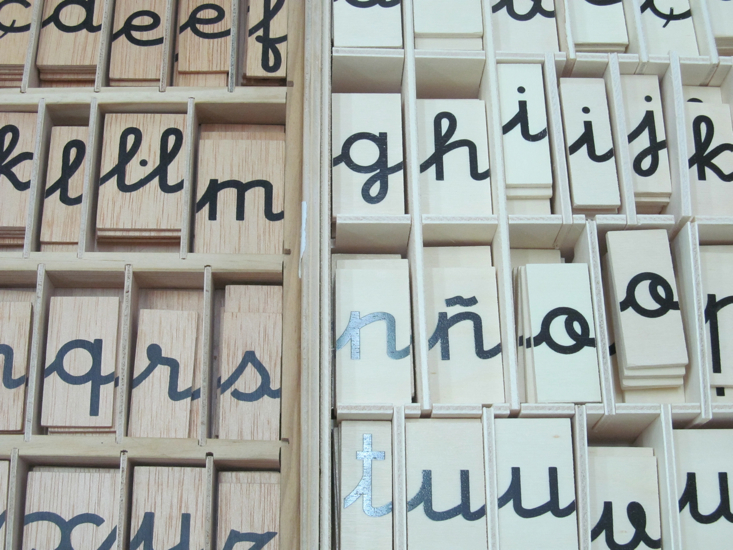 ç d e e f
k l l·l m
q r s
x y z
g h i i j k
n ñ o o p
t u u v u